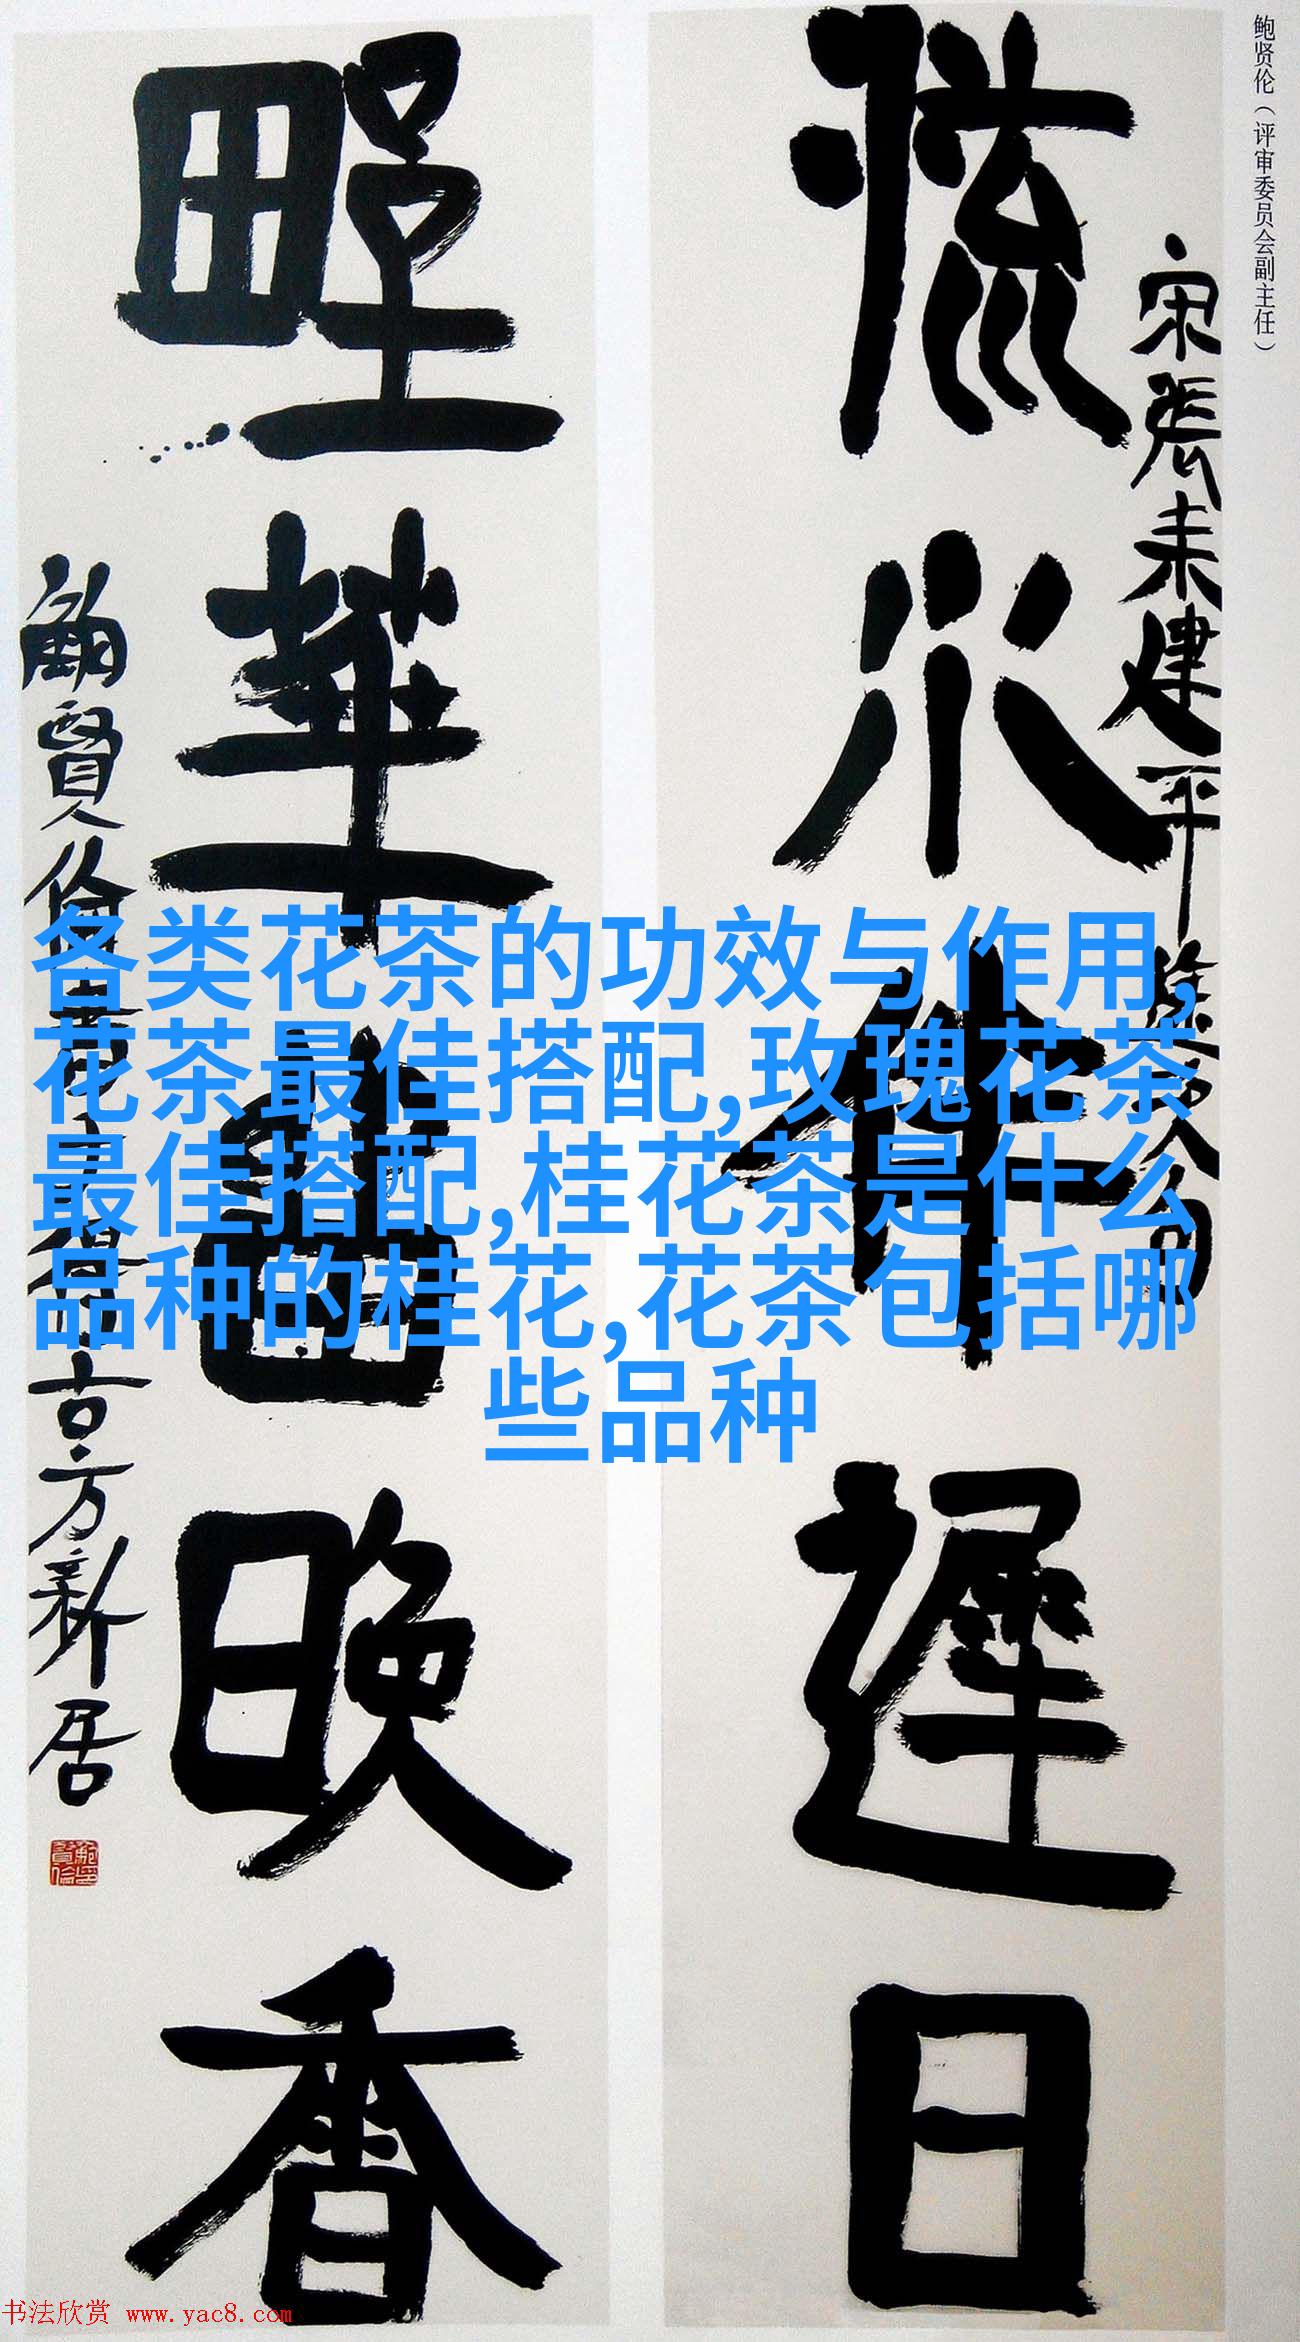 鲍贤伦（评审委员会副主任）
宋張耒建平途次句
流水作遲日
野華晚香
鮑賢倫
古方新居
各类花茶的功效与作用,
花茶最佳搭配,玫瑰花茶
最佳搭配,桂花茶是什么
品种的桂花,花茶包括哪
些品种
书法欣赏 www.yac8.com